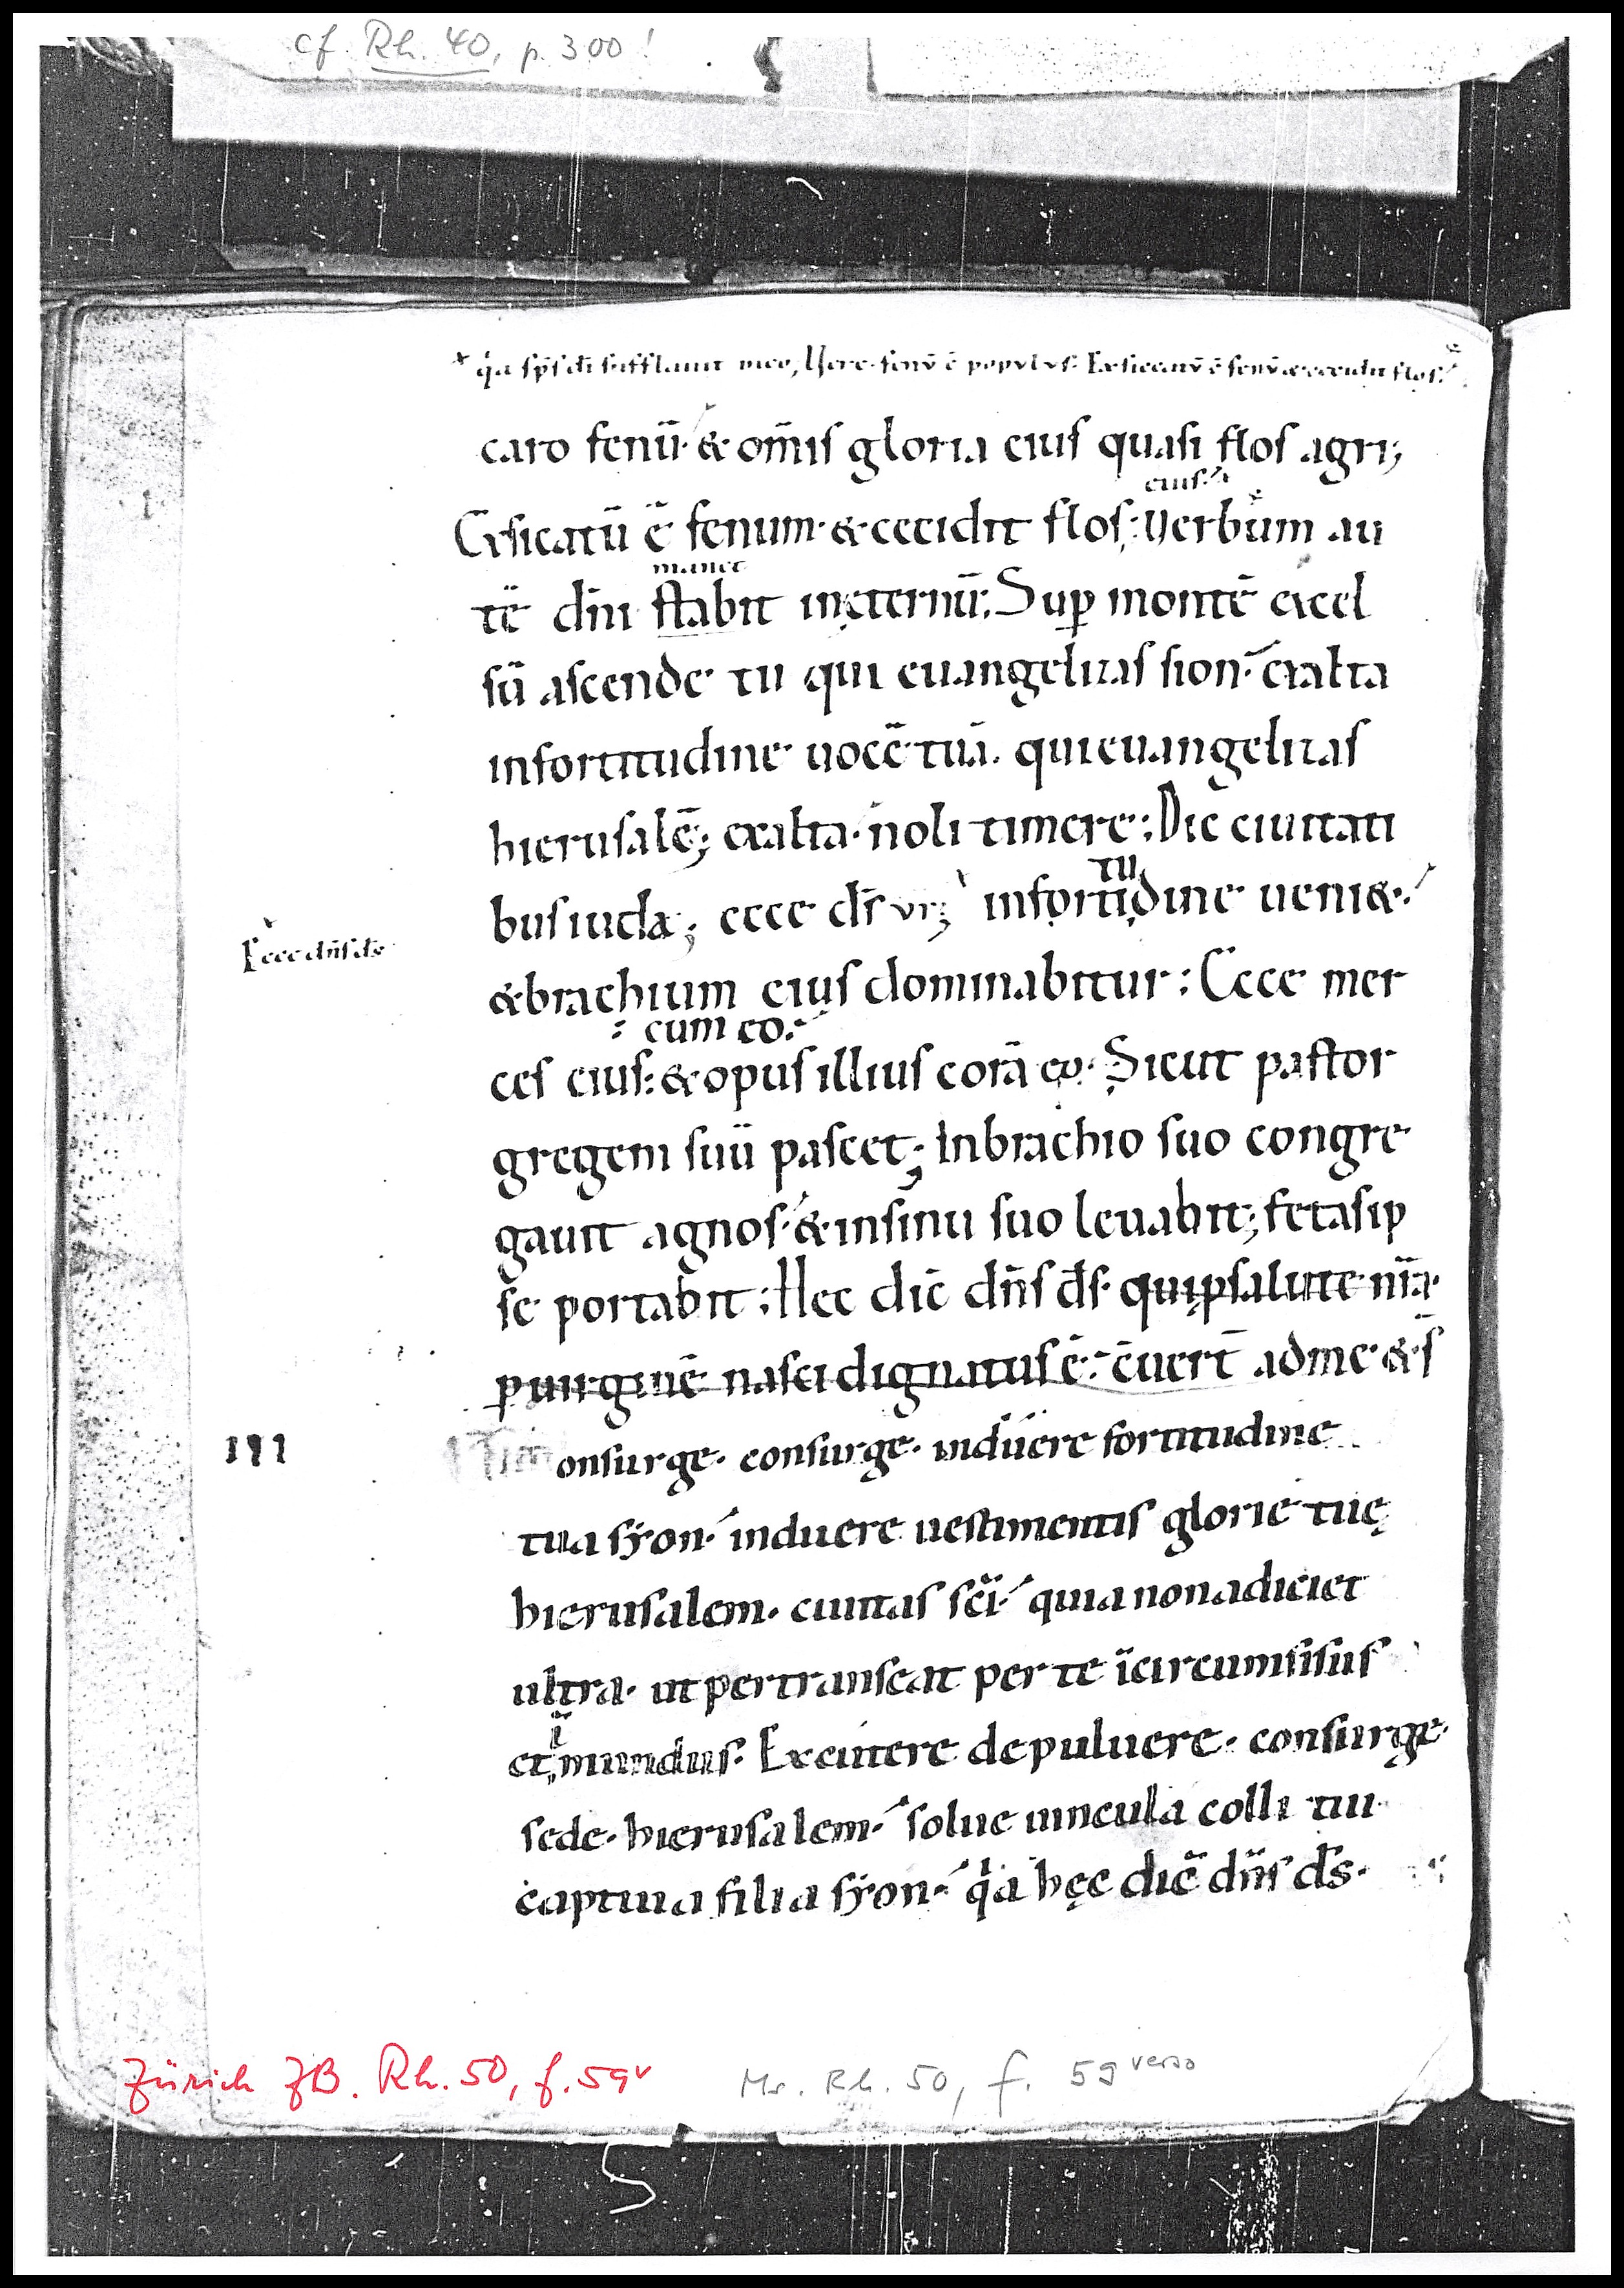 cf. Rh. 40, p. 300!
q̇a sp̄s dn̄i sufflauit in eo, Uere fenū ē populus: Exsiccatū ē fenū & cecidit flos:
caro fenū· & om̄is gloria eius quasi flos agri;
eius:
Exsicatū ē fenum· & cecidit flos: Uerbum au
manet
tē dn̄i stabit inęternū; Sup̱ montē excel
sū ascende tu qui euangelizas sion· exalta
infortitudine uocē tuā. qui euangelizas
hierusalē; exalta· noli timere: Dic ciuitati
tu
bus iuda; ecce ds̄ vr̄; infortidine ueni&·
Ecce dn̄s ds̄
& brachium eius dominabitur: Ecce mer
: cum eo.
ces eius: & opus illius corā eo· Sicut pastor
gregem suū pascet; Inbrachio suo congre
gauit agnos· & insinu suo leuabit; fetas ip
se portabit: Hec dic̄ dn̄s ds̄· qui p̱ salute nr̄a·
p̱ uirginē nasci dignatus ē: c̄uert̄ ad me & s̄
III onsurge· consurge· induere fortitudine
tua syon· induere uestimentis glorie tuę
hierusalem· ciuitas sc̄i· quia non adiciet
ultra· ut pertranseat per te īcircumsisus
ī
et mundus· Excutere de puluere· consurge·
sede· hierusalem· solue uincula colli tui
captiua filia syon· q̇a hęc dic̄ dn̄s ds̄·
Zürich ZB. Rh. 50, f. 59v
Ms. Rh. 50, f. 59 verso